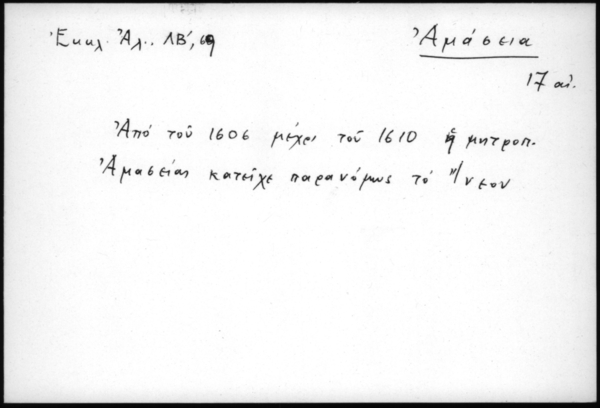 Ἐκκλ. Ἀλ. ΛΒ', 69
Ἀμάσεια
17 αἰ.
Ἀπό τοῦ 1606 μέχρι τοῦ 1610 ἡ μητροπ.
Ἀμασείας κατεῖχε παρανόμως τό Ἤνεον